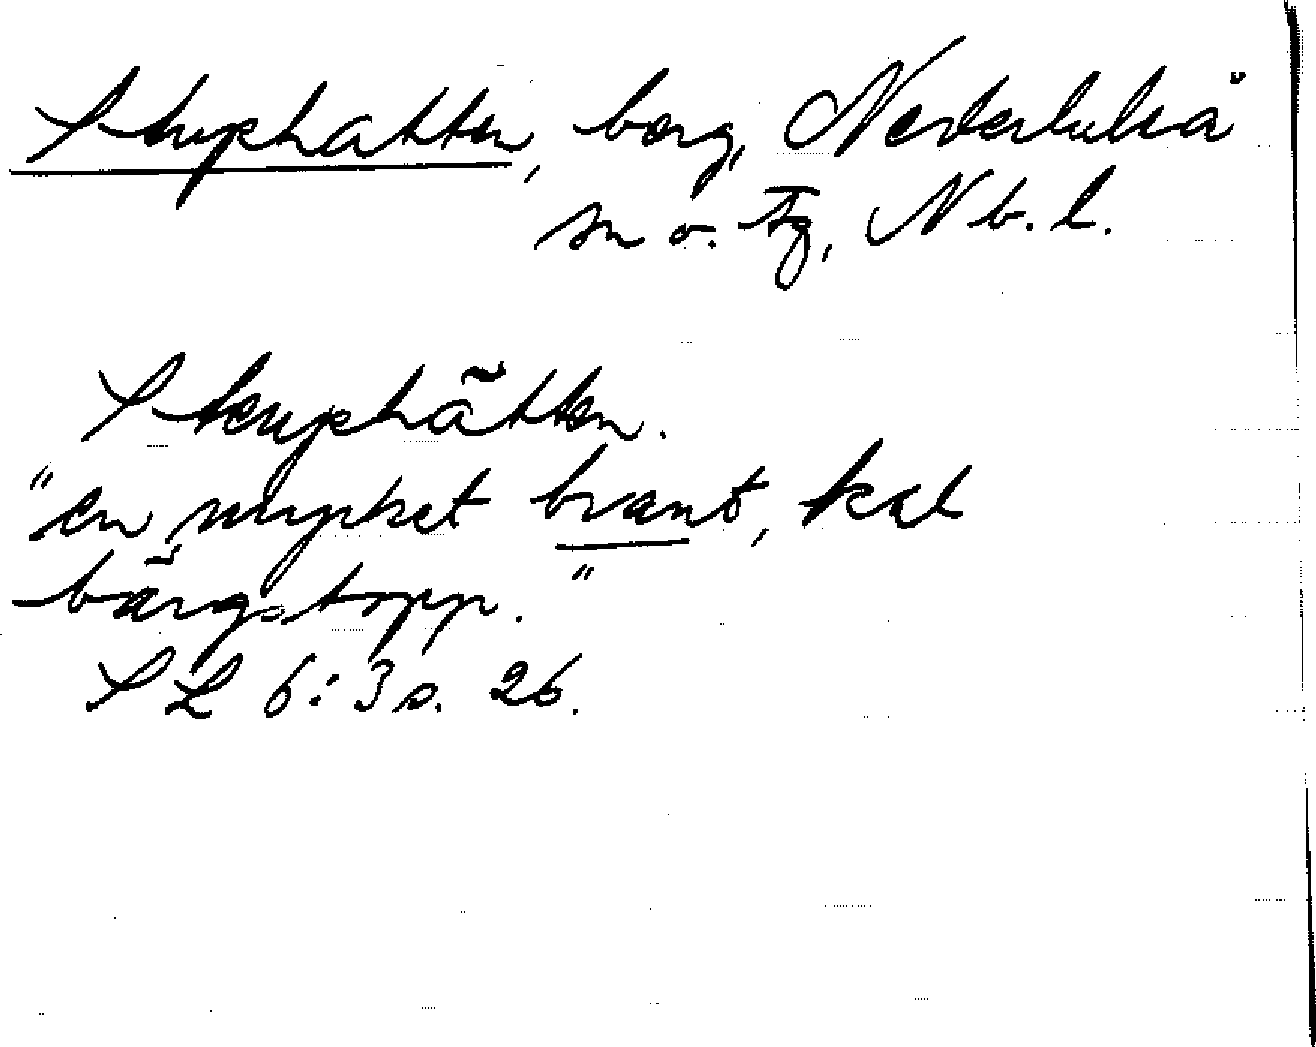 Stuphatten, berg, Nederluleå
sn o. tg, Nb. l.
Stuphätten.
"en mycket brant, kal
bärgstopp."
SL 6:3 s. 26.